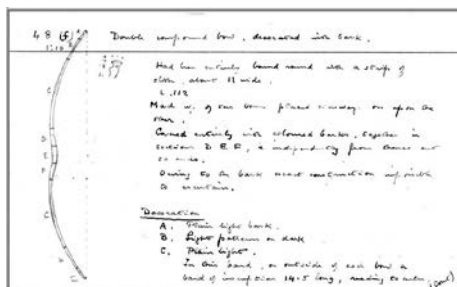 48 (f) Double compound bow, decorated with bark.
1:10
Had been entirely bound round with a strip of
cloth, about 11 wide.
L. 112
Made of two bows placed one upon the
other.
Covered entirely with coloured bark, together in
sections D E F, & independently from thence out
to ends.
Owing to the bark exact construction impossible
to ascertain.
Decoration
A. Plain light bark.
B. Light pattern on dark
C. Plain light.
In this band, on outside of each bow a
band of inscription 14.5 long, reading to centre, (cont)
C
D
E
F
C